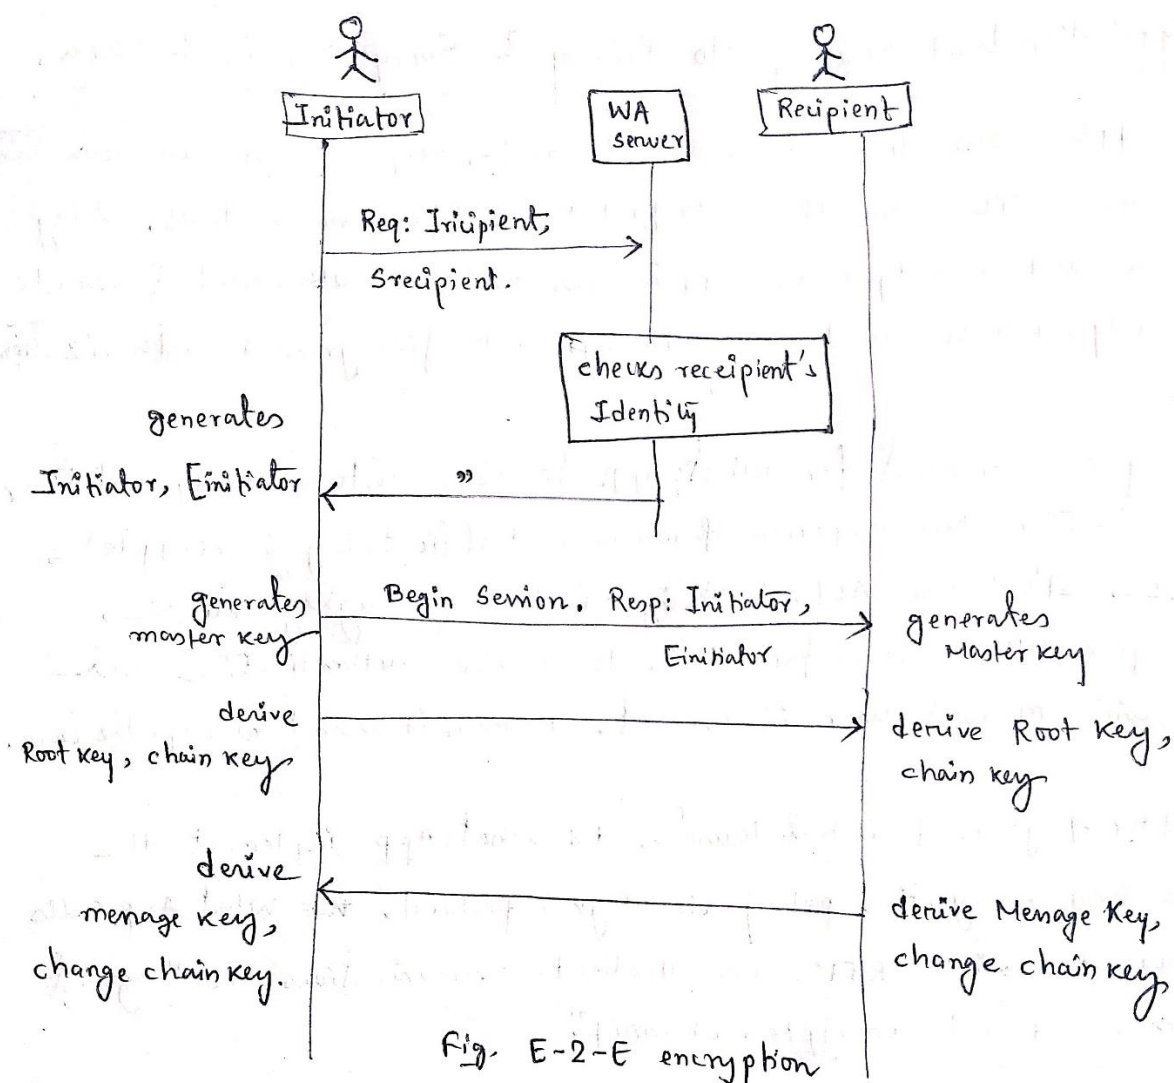 Initiator
WA
server
Recipient
Req: Iricipient,
Srecipient.
checks receipient's
Identity
generates
Initiator, Einitiator
"
generates
master key
Begin Session. Resp: Initiator,
Einitiator
generates
Master key
derive
Root key, chain key
derive Root key,
chain key
derive
message key,
change chain key.
derive Message Key,
change chain key
Fig. E-2-E encryption